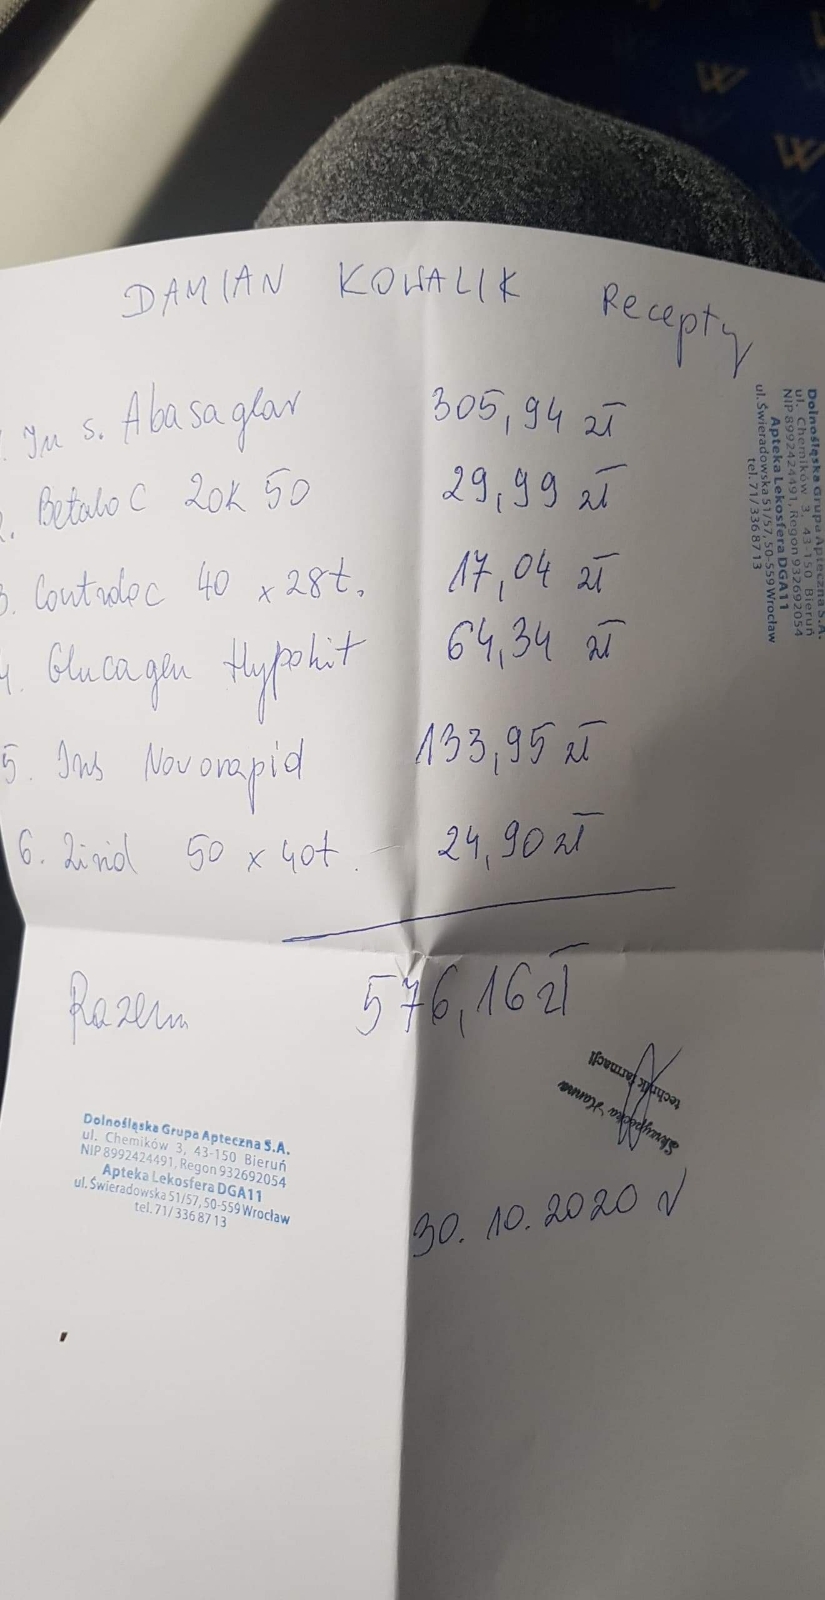 DAMIAN KOWALIK Recepty
1. Ins. Abasaglar 305,94 zł
2. Betaloc ZOK 50 29,99 zł
3. Controloc 40 x 28t. 17,04 zł
4. Glucagen Hypokit 64,34 zł
5. Ins Novorapid 133,95 zł
6. 50 x 40t. 24,90 zł
Razem 576,16 zł
Dolnośląska Grupa Apteczna S.A.
ul. Chemików 3, 43-150 Bieruń
NIP 8992424491, Regon 932692054
Apteka Lekosfera DGA11
ul. Świeradowska 51/57, 50-559 Wrocław
tel. 71/ 336 87 13
Dolnośląska Grupa Apteczna S.A.
ul. Chemików 3, 43-150 Bieruń
NIP 8992424491, Regon 932692054
Apteka Lekosfera DGA11
ul. Świeradowska 51/57, 50-559 Wrocław
tel. 71/ 336 87 13
Hanna
technik farmacji
30.10.2020